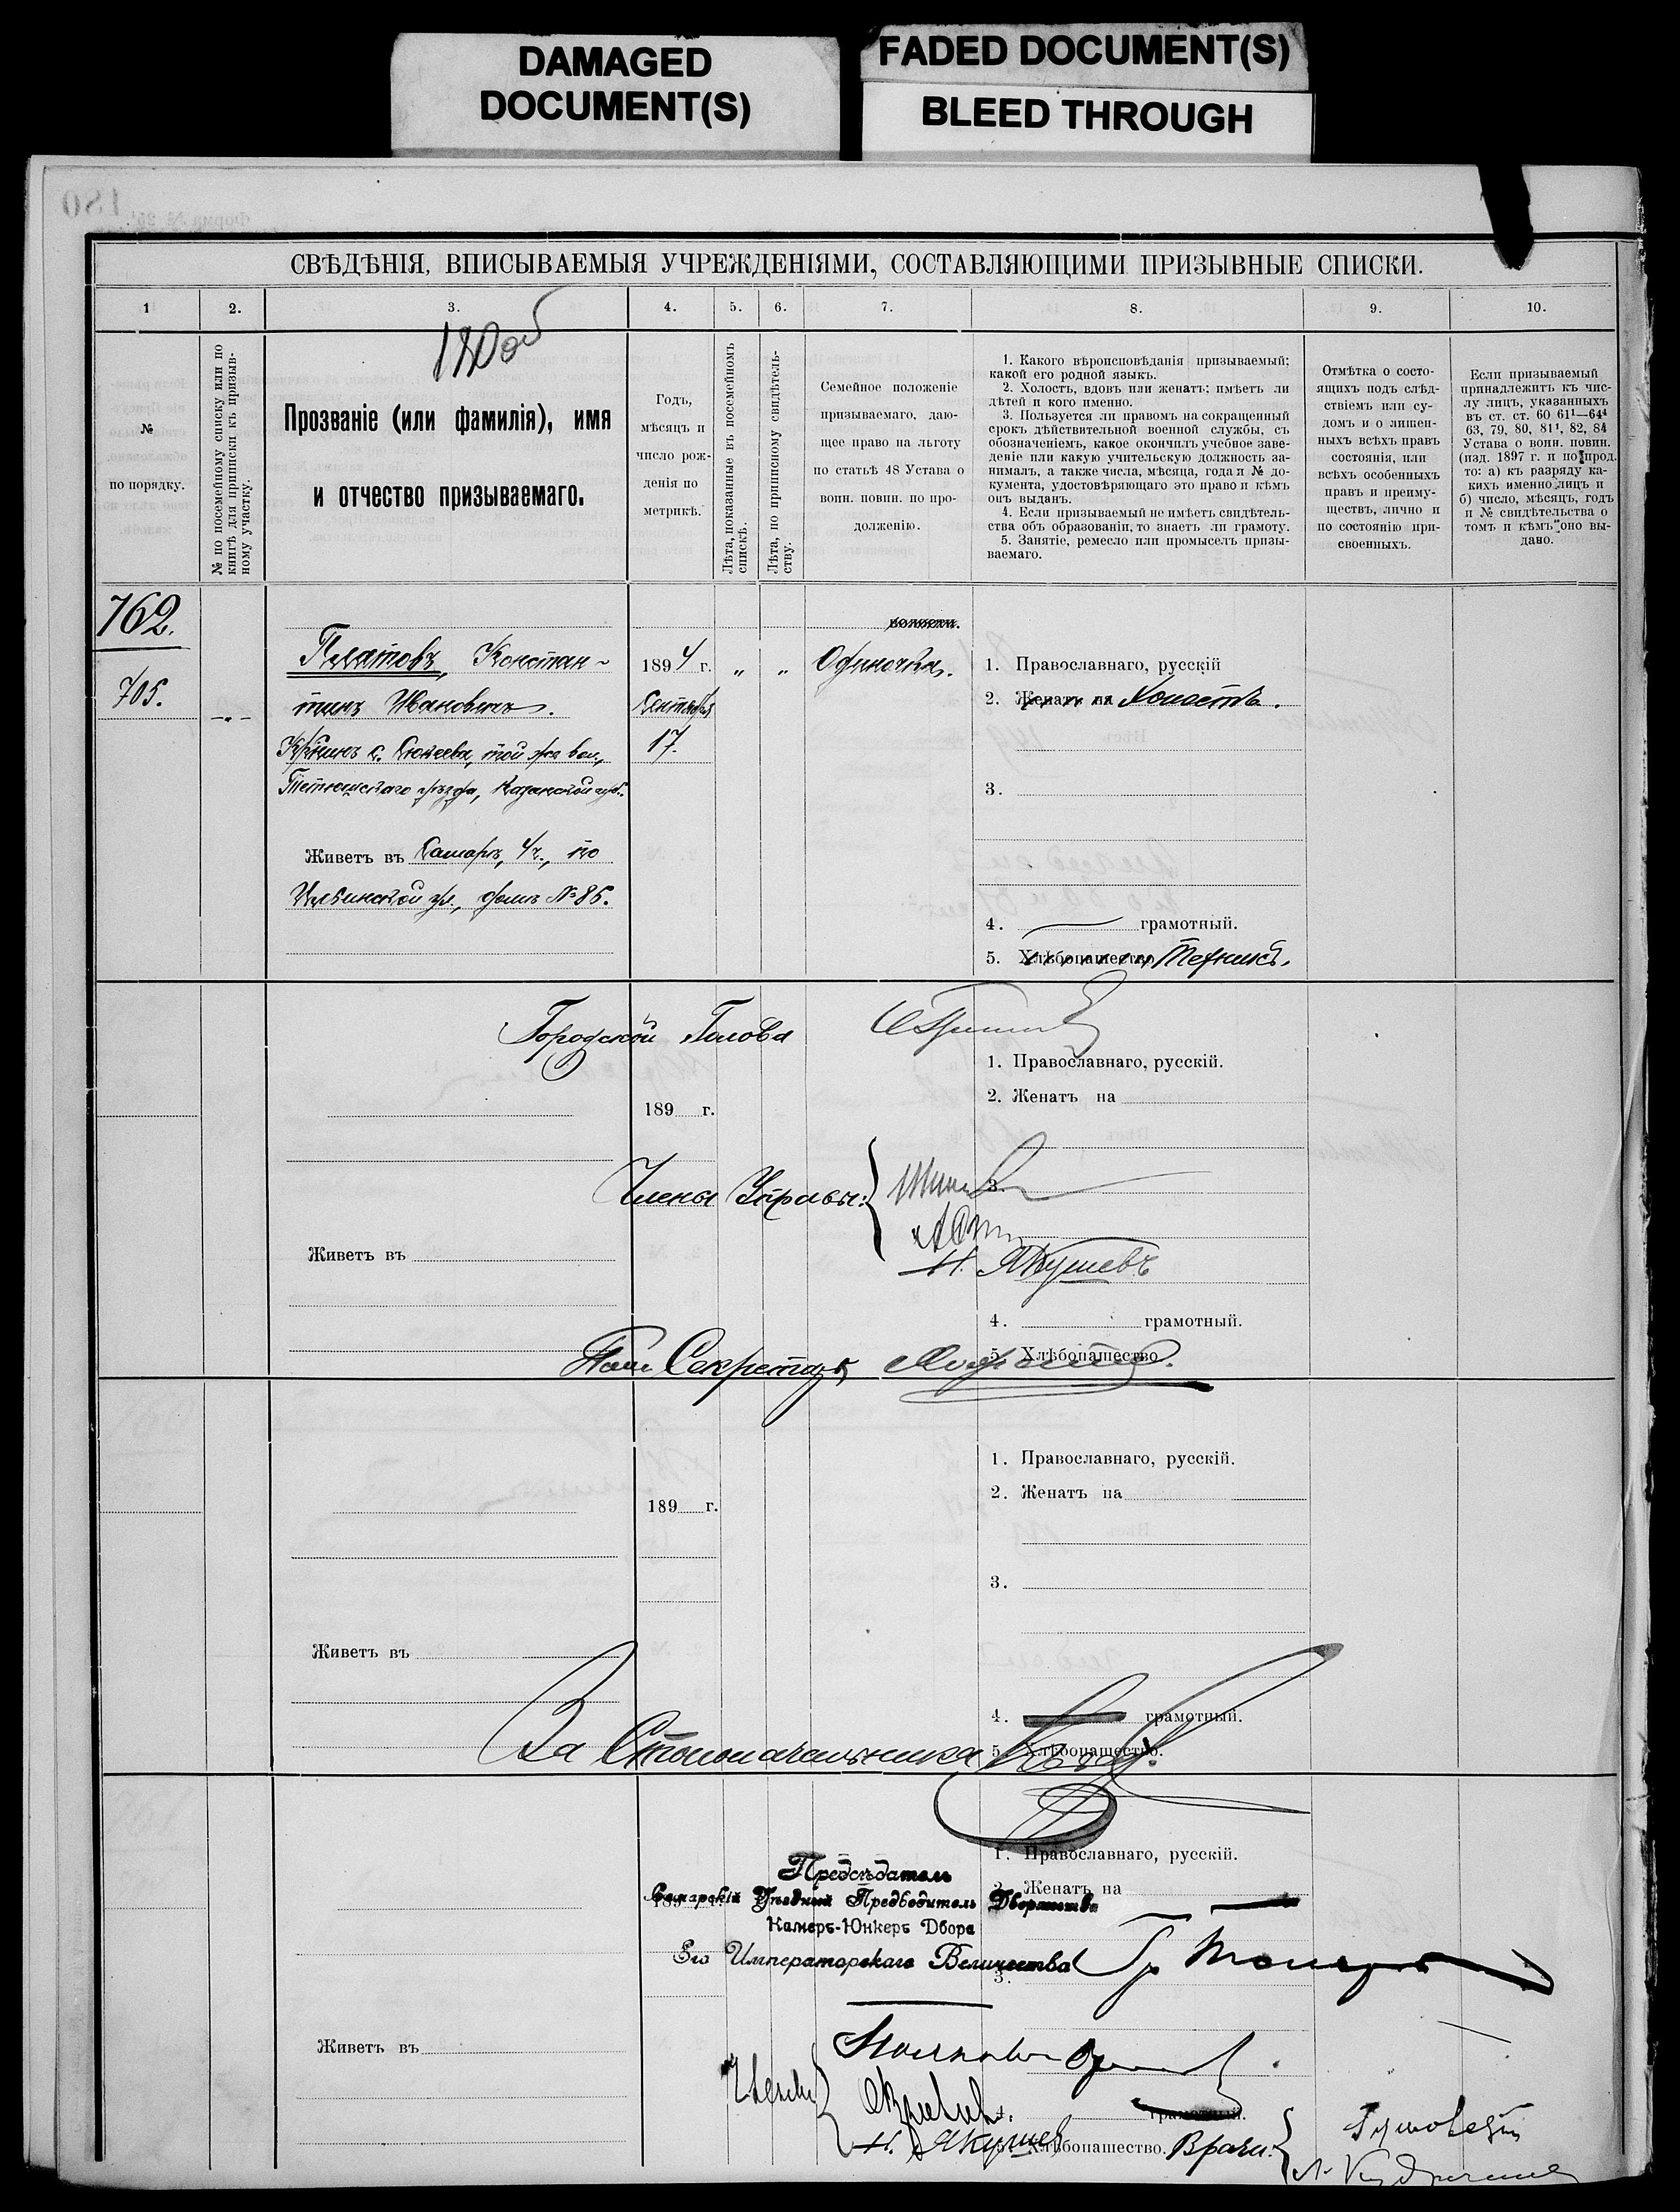 DAMAGED
DOCUMENT(S)
FADED DOCUMENT(S)
BLEED THROUGH
СВѢДѢНІЯ, ВПИСЫВАЕМЫЯ УЧРЕЖДЕНІЯМИ, СОСТАВЛЯЮЩИМИ ПРИЗЫВНЫЕ СПИСКИ.
1 2. 3. 4. 5. 6. 7. 8. 9. 10.
180 об
№
по порядку.
№ по посемейному списку или по
книгѣ для приписки къ призыв-
ному участку.
Прозваніе (или фамилія), имя
и отчество призываемаго.
Годъ,
мѣсяцъ и
число рож-
денія по
метрикѣ.
Лѣта, показанные въ посемейномъ
спискѣ.
Лѣта, по приписному свидѣтель-
ству.
Семейное положеніе
призываемаго, даю-
щее право на льготу
по статьѣ 48 Устава о
воин. повин. по про-
долженію.
1. Какого вѣроисповѣданія призываемый;
какой его родной языкъ.
2. Холостъ, вдовъ или женатъ; имѣетъ ли
дѣтей и кого именно.
3. Пользуется ли правомъ на сокращенный
срокъ дѣйствительной военной службы, съ
обозначеніемъ, какое окончилъ учебное заве-
деніе или какую учительскую должность за-
нималъ, а также числа, мѣсяца, года и № до-
кумента, удостовѣряющаго это право и кѣмъ
онъ выданъ.
4. Если призываемый не имѣетъ свидѣтель-
ства объ образованіи, то знаетъ ли грамоту.
5. Занятіе, ремесло или промыселъ призы-
ваемаго.
Отмѣтка о состо-
ящихъ подъ слѣд-
ствіемъ или су-
домъ и о лишен-
ныхъ всѣхъ правъ
состоянія, или
всѣхъ особенныхъ
правъ и преиму-
ществъ, лично и
по состоянію при-
своенныхъ.
Если призываемый
принадлежитъ къ чис-
лу лицъ, указанныхъ
въ ст. ст. 60 61¹—64⁴
63, 79, 80, 81¹, 82, 84
Устава о воин. повин.
(изд. 1897 г. и по прод.
то: а) къ разряду ка-
кихъ именно лицъ и
б) число, мѣсяцъ, годъ
и № свидѣтельства о
томъ и кѣмъ оно вы-
дано.
762.
705.
Платовъ, Констан-
тинъ Ивановичъ.
Кр-нинъ с. Сюкеева, той же вол.,
Тетюшскаго уѣзда, Казанской губ.
Живетъ въ Самарѣ, 4 ч., по
Ильинской ул., домъ № 86.
1894 г.
Сентября
17.
" "
волости.
Одиночка.
1. Православнаго, русскій
2. Женатъ на Холостъ.
3.
4. грамотный.
5. Хлѣбопашество Техникъ.
Городской Голова
1. Православнаго, русскій.
189 г.
2. Женатъ на
Члены Управы:
3.
Н. Якушевъ
Живетъ въ
4. грамотный.
5. Хлѣбопашество.
Секретарь
1. Православнаго, русскій.
2. Женатъ на
189 г.
3.
Живетъ въ
4. грамотный.
5. Хлѣбопашество.
За Столоначальника
1. Православнаго, русскій.
Предсѣдатель
2. Женатъ на
Самарскій Уѣздный Предводитель Дворянства
Камеръ-Юнкеръ Двора
Его Императорскаго Величества Гр. Толстой
3.
Живетъ въ
Члены
4. грамотный.
Н. Якушевъ
Хлѣбопашество. Врачи: